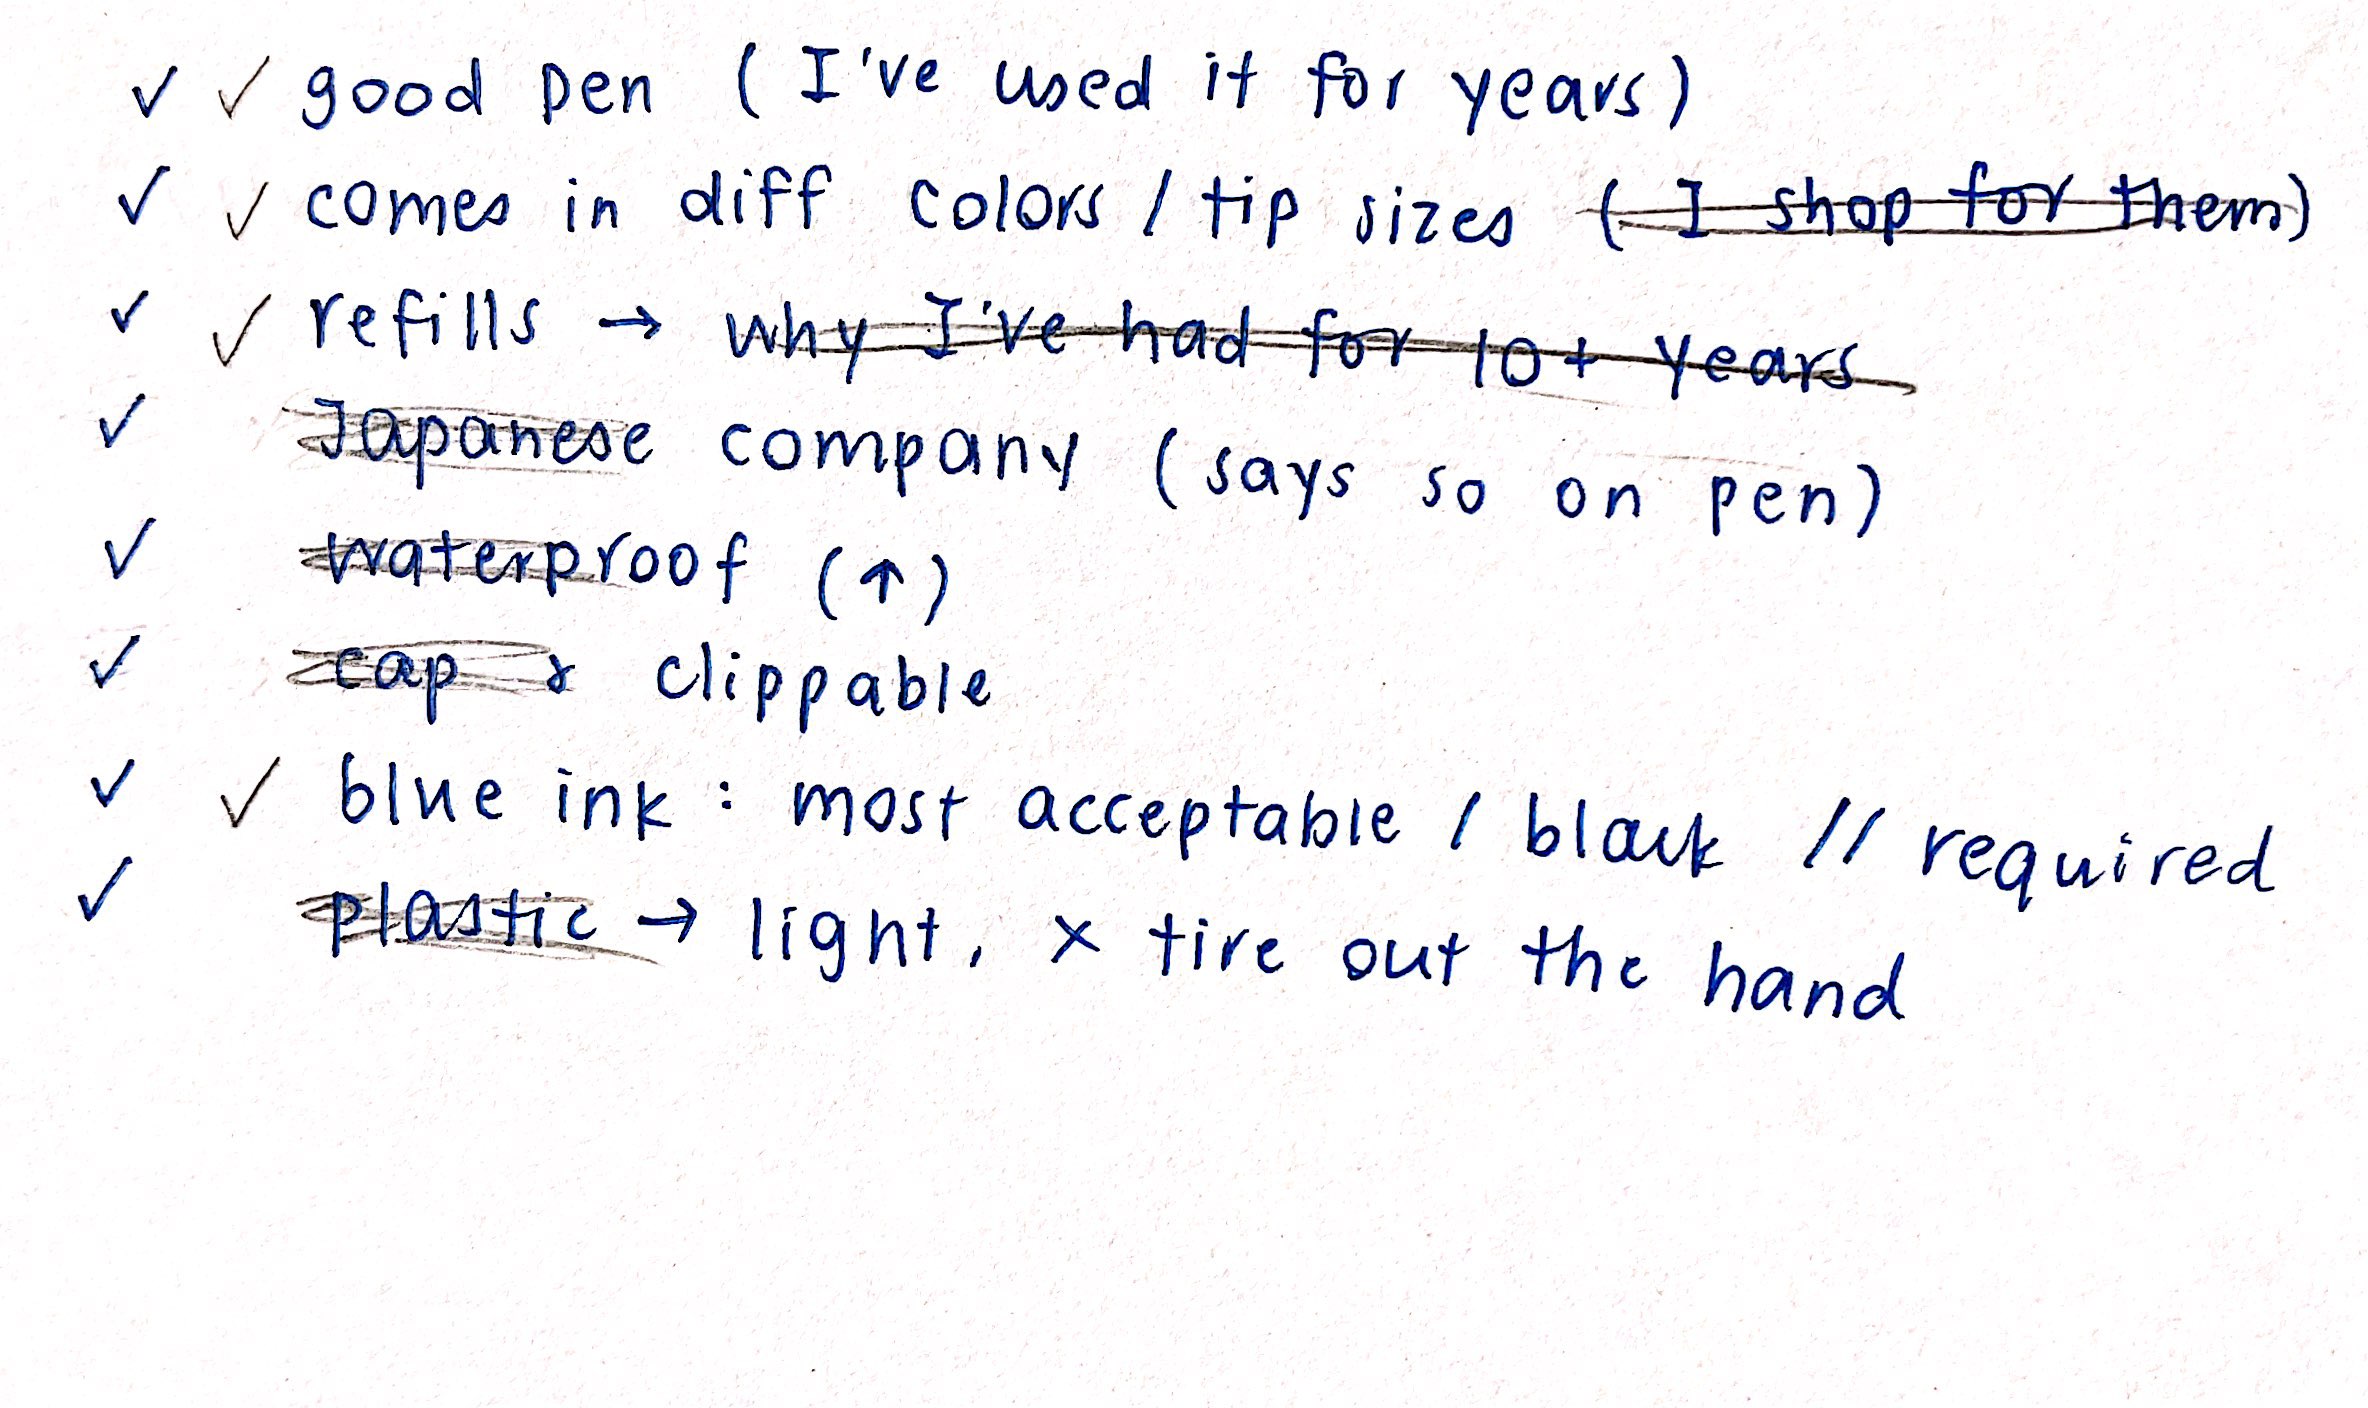 ✓ ✓ good pen (I've used it for years)
✓ ✓ comes in diff colors / tip sizes (I shop for them)
✓ ✓ refills → why I've had for 10+ years
✓ Japanese company (says so on pen)
✓ waterproof (↑)
✓ cap & clippable
✓ ✓ blue ink : most acceptable / black // required
✓ plastic → light, x tire out the hand